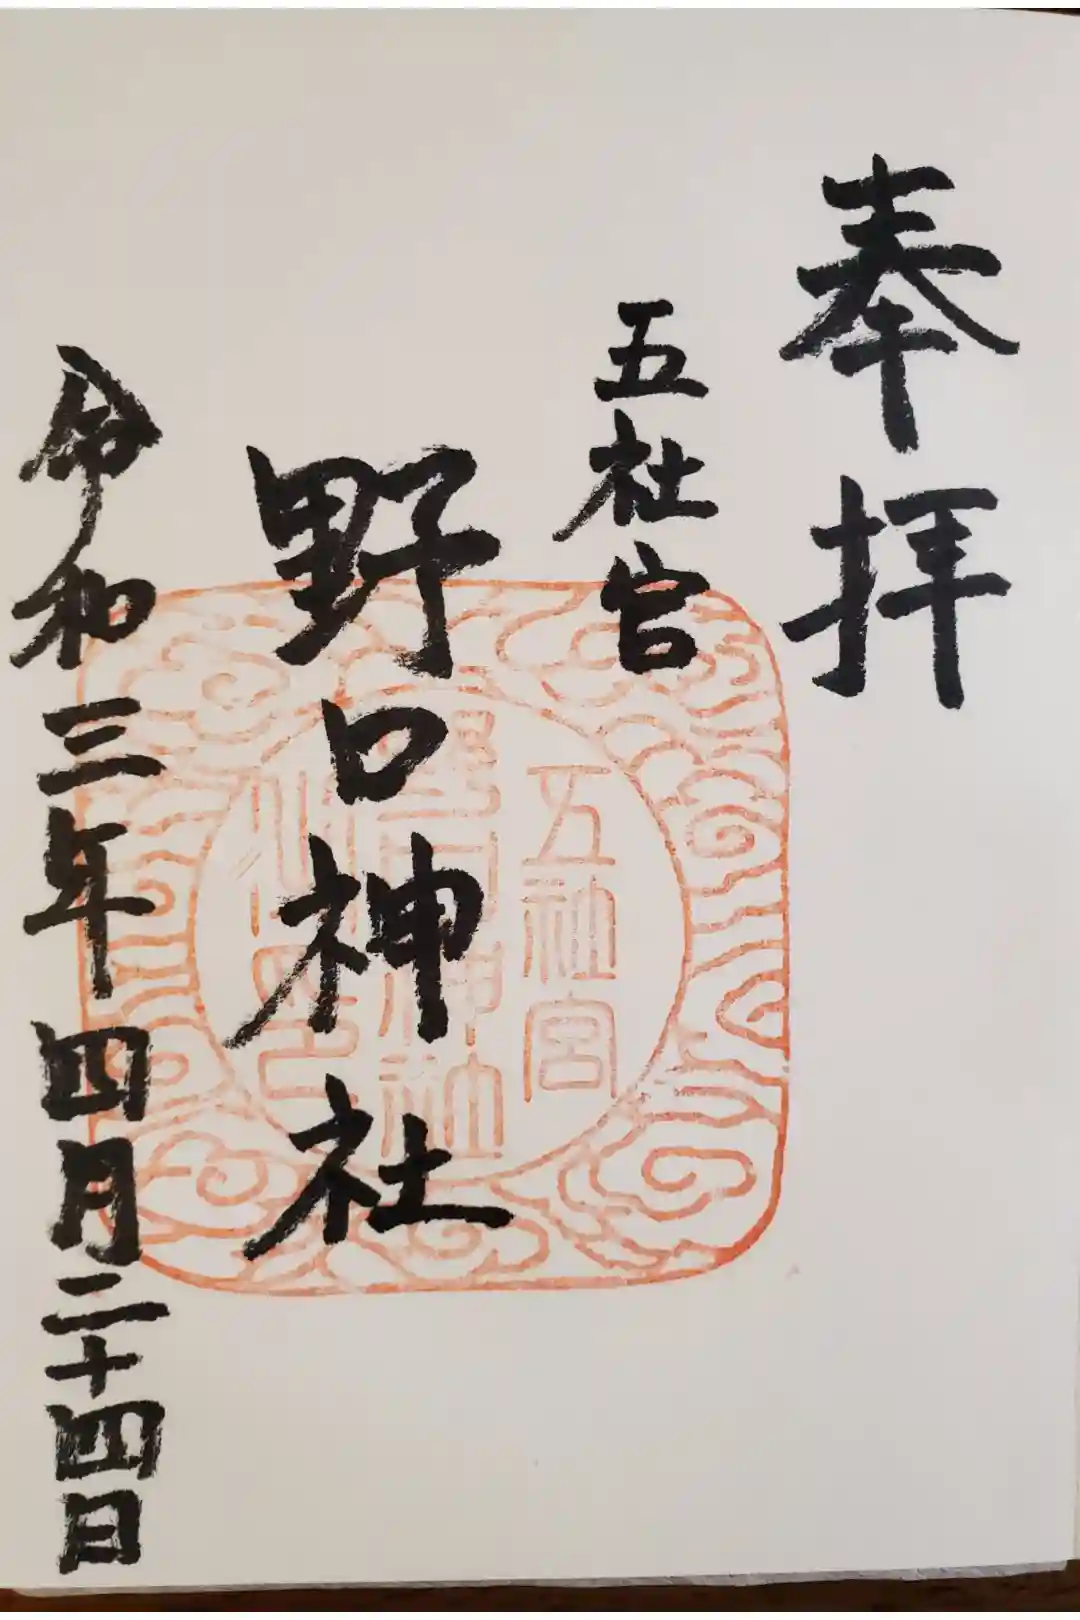 奉拝
五社宮
野口神社
令和三年四月二十四日
五社宮
野口神社